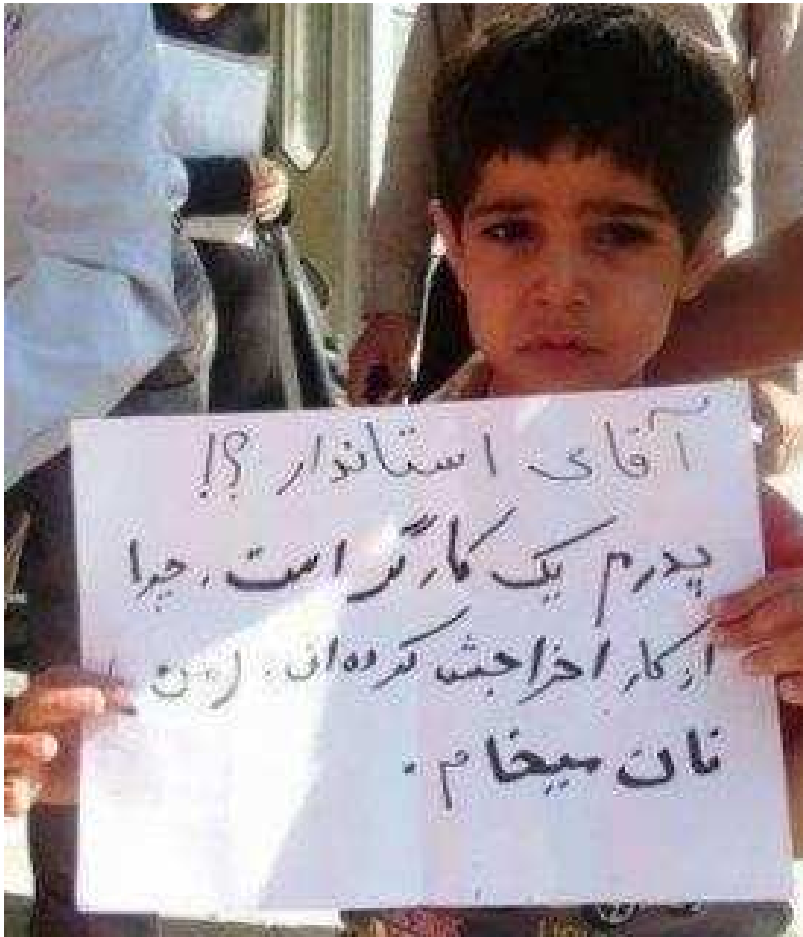 آقای استاندار ؟!
پدرم یک کارگر است، چرا
از کار اخراجش کرده‌اند، من
نان میخام.